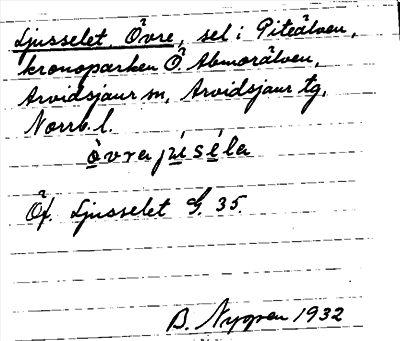 Ljusselet, Övre, sel i Piteälven,
kronoparken Ö. Abmorälven,
Arvidsjaur sn, Arvidsjaur tg,
Norrb. l.
övra
Öf. Ljusselet G. 35.
B. Nygren 1932